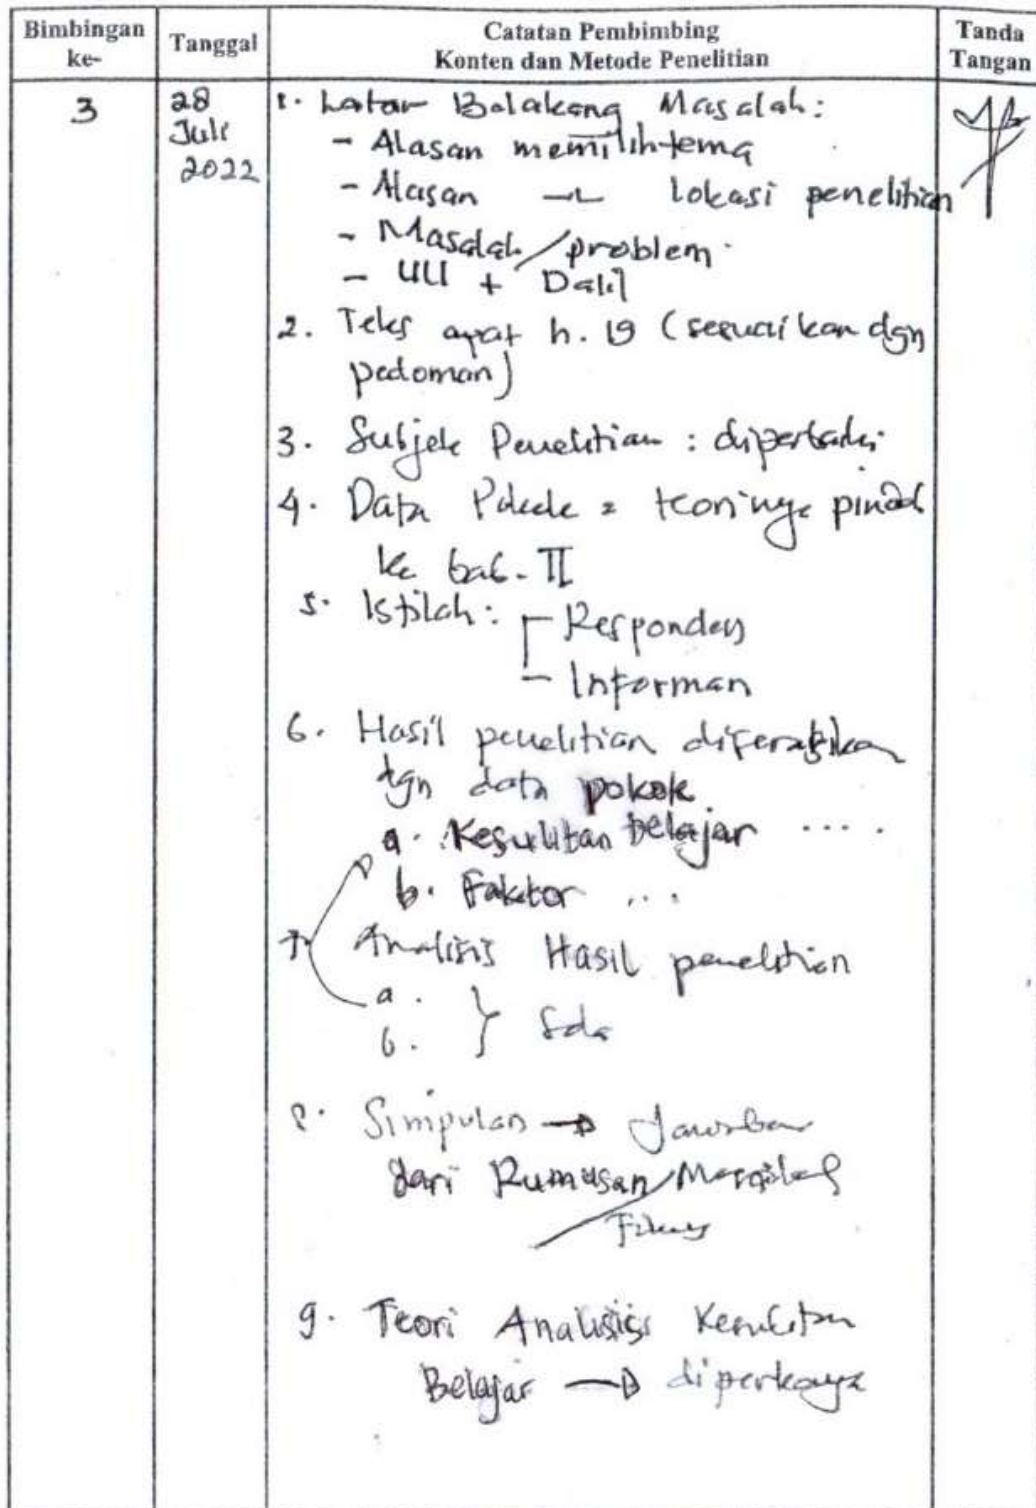 Bimbingan ke-
Tanggal
Catatan Pembimbing
Konten dan Metode Penelitian
Tanda Tangan
3
28
Juli
2022
1. Latar Belakang Masalah:
- Alasan memilih tema
- Alasan —"— lokasi penelitian
- Masalah/problem.
- UU + Dalil
2. Teks ayat h. 19 (sesuaikan dgn
pedoman)
3. Subjek Penelitian : diperbaiki
4. Data Pokok = teorinya pindah
ke bab. II
5. Istilah: - Responden
- Informan
6. Hasil penelitian
dgn data pokok
a. Kesulitan belajar ....
b. Faktor ...
7. Analisis Hasil penelitian
a.
b. } Sda
8. Simpulan → Jawaban
dari Rumusan Masalah/
Fokus
9. Teori Analisis Kesulitan
Belajar → diperkaya